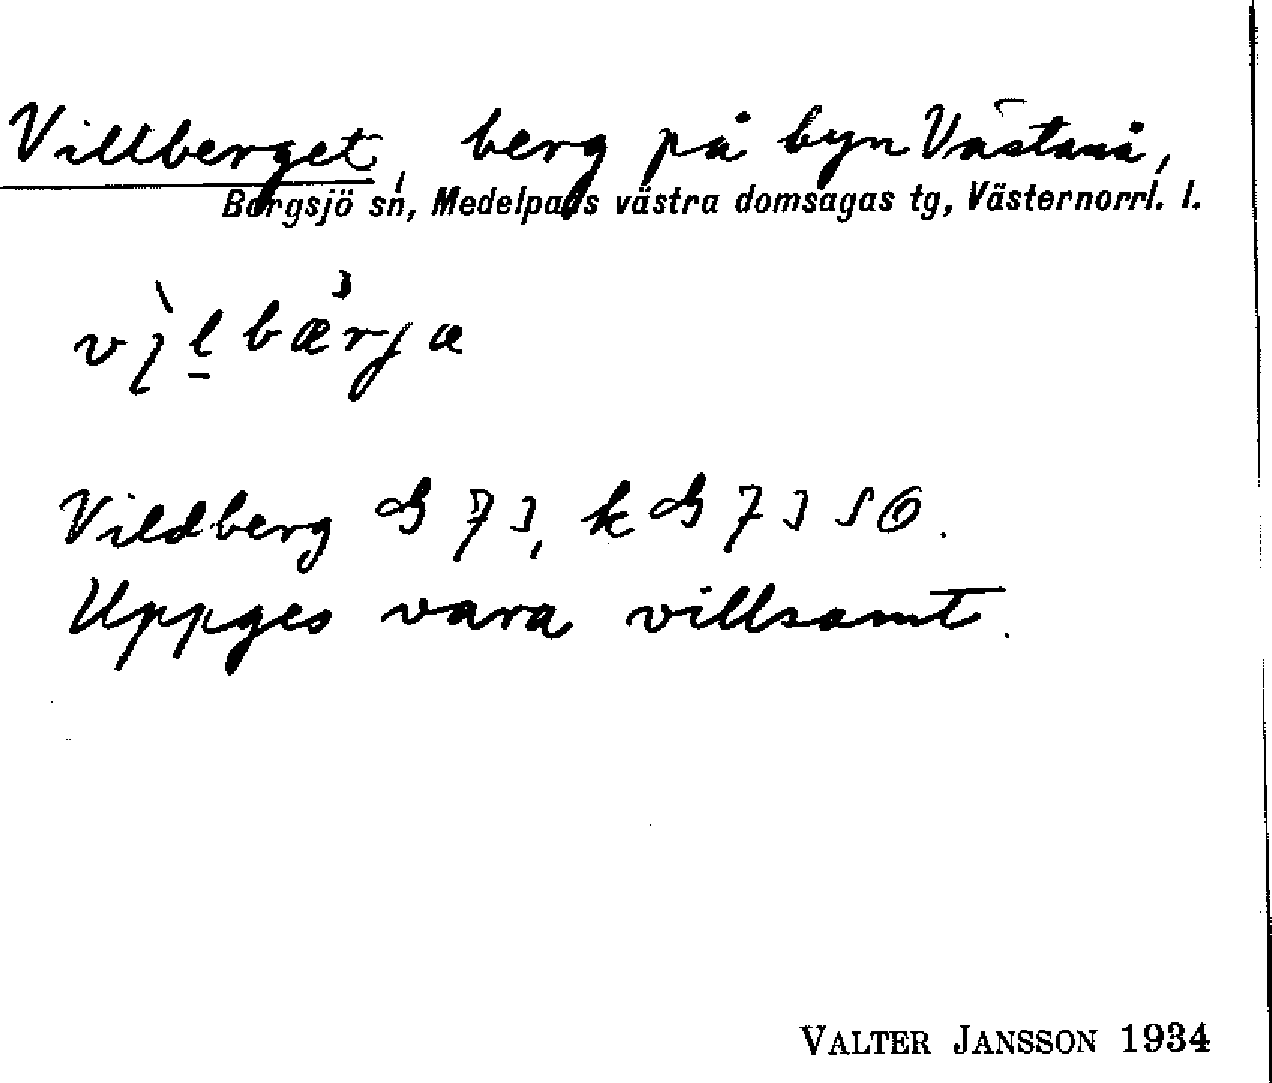 Villberget, berg på byn Västanå,
Borgsjö sn, Medelpads västra domsagas tg, Västernorrl. l.
Vildberg
Uppges vara villsamt.
VALTER JANSSON 1934